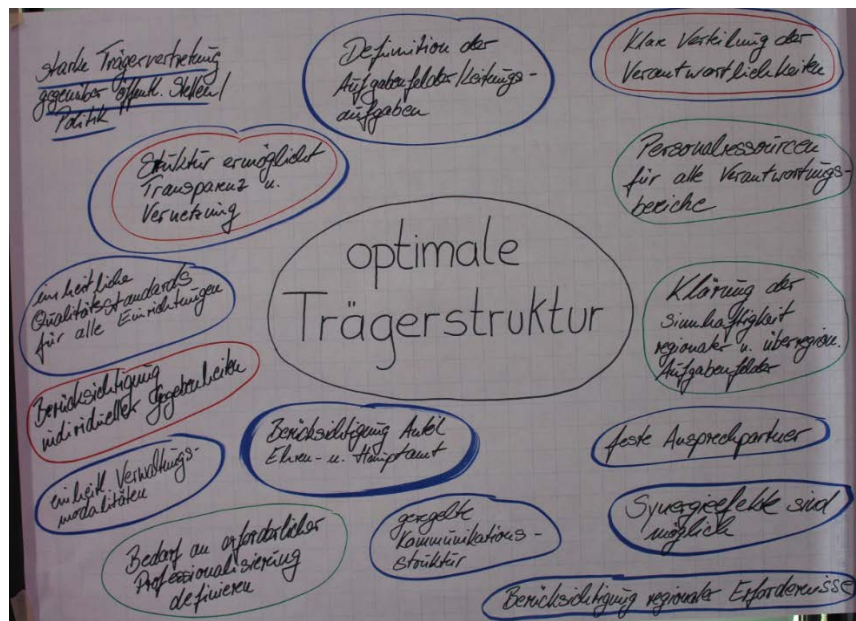 starke Trägervertretung
gegenüber öffentl. Stellen/
Politik
Definition der
Aufgabenfelder/Leitungs-
aufgaben
Klare Verteilung der
Verantwortlichkeiten
Struktur ermöglicht
Transparenz u.
Vernetzung
Personalressourcen
für alle Verantwortungs-
bereiche
optimale
Trägerstruktur
einheitliche
Qualitätsstandards
für alle Einrichtungen
Klärung der
Sinnhaftigkeit
regionaler u. überregion.
Aufgabenfelder
Berücksichtigung
individueller Gegebenheiten
Berücksichtigung Anteil
Ehren- u. Hauptamt
feste Ansprechpartner
einheitl. Verwaltungs-
modalitäten
geregelte
Kommunikations-
struktur
Synergieefekte sind
möglich
Bedarf an erforderlicher
Professionalisierung
definieren
Berücksichtigung regionaler Erfordernisse